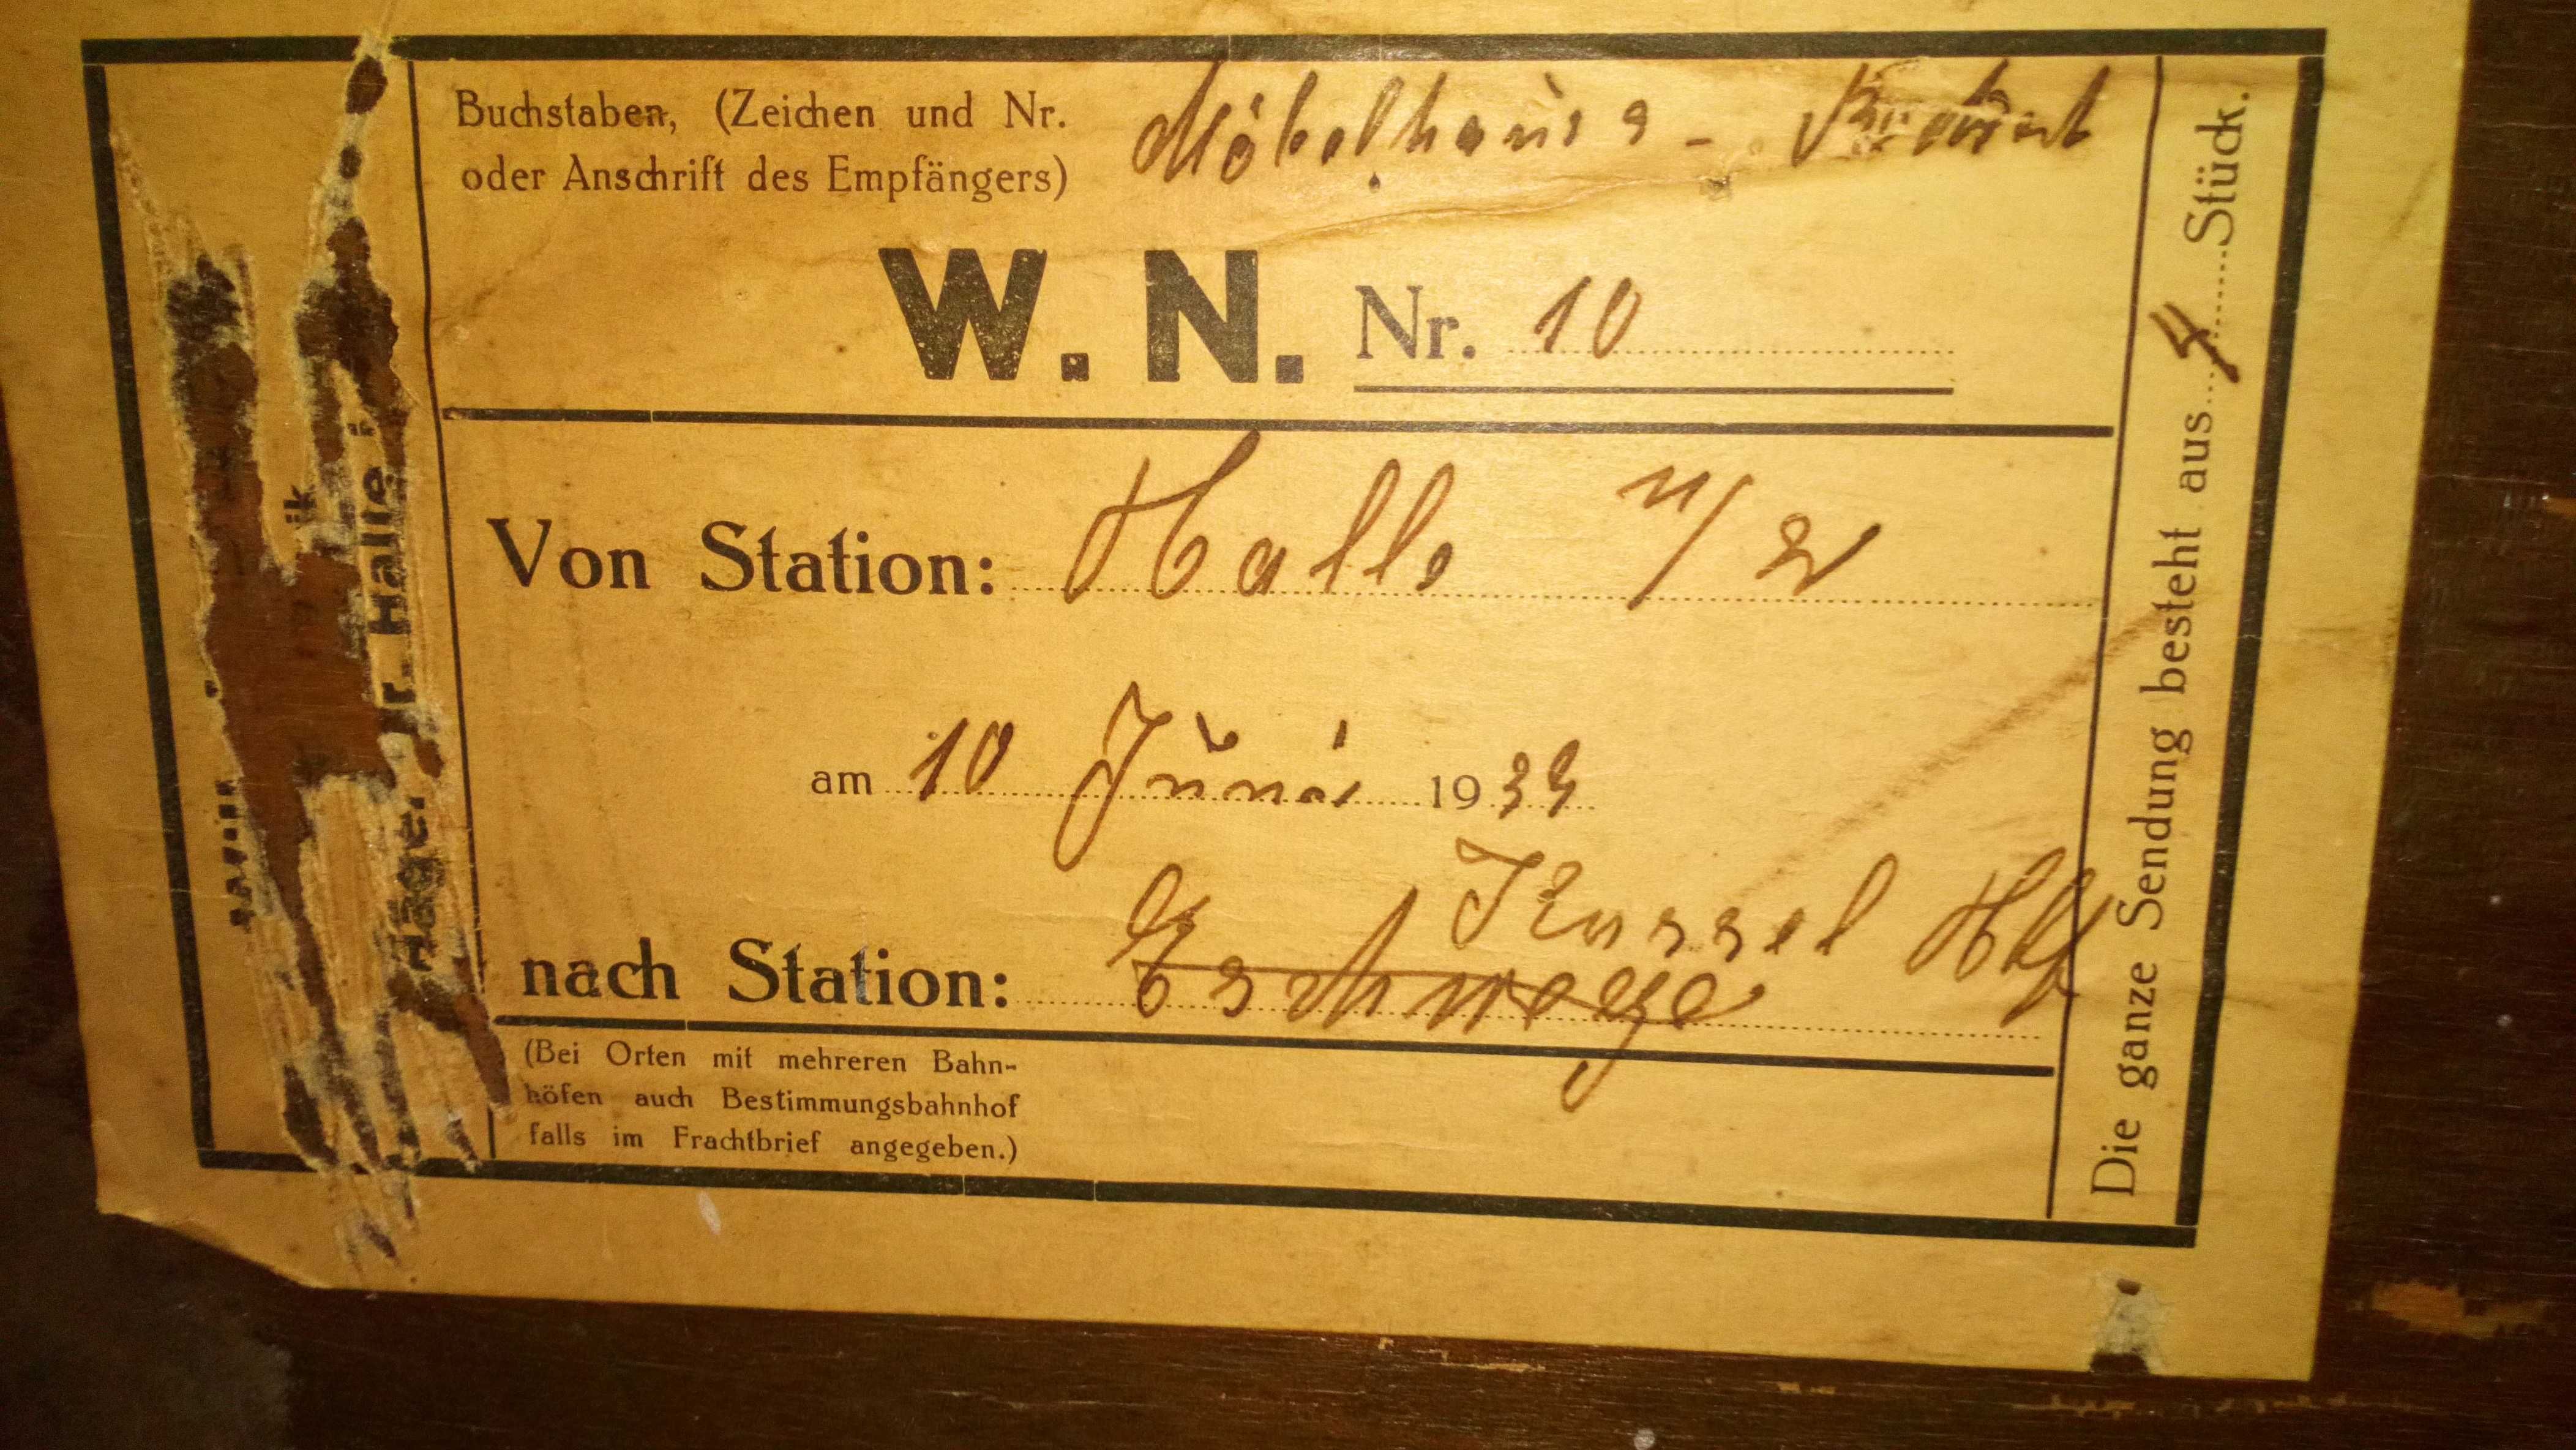 Buchstaben, (Zeichen und Nr.
oder Anschrift des Empfängers)
Möbelhaus -
W. N. Nr. 10
Von Station: Halle i/W
am 10 Juni 19
Kassel Hbf
nach Station: Eschwege
(Bei Orten mit mehreren Bahn-
höfen auch Bestimmungsbahnhof
falls im Frachtbrief angegeben.)
Die ganze Sendung besteht aus 4 Stück.
Jr. Halle i.